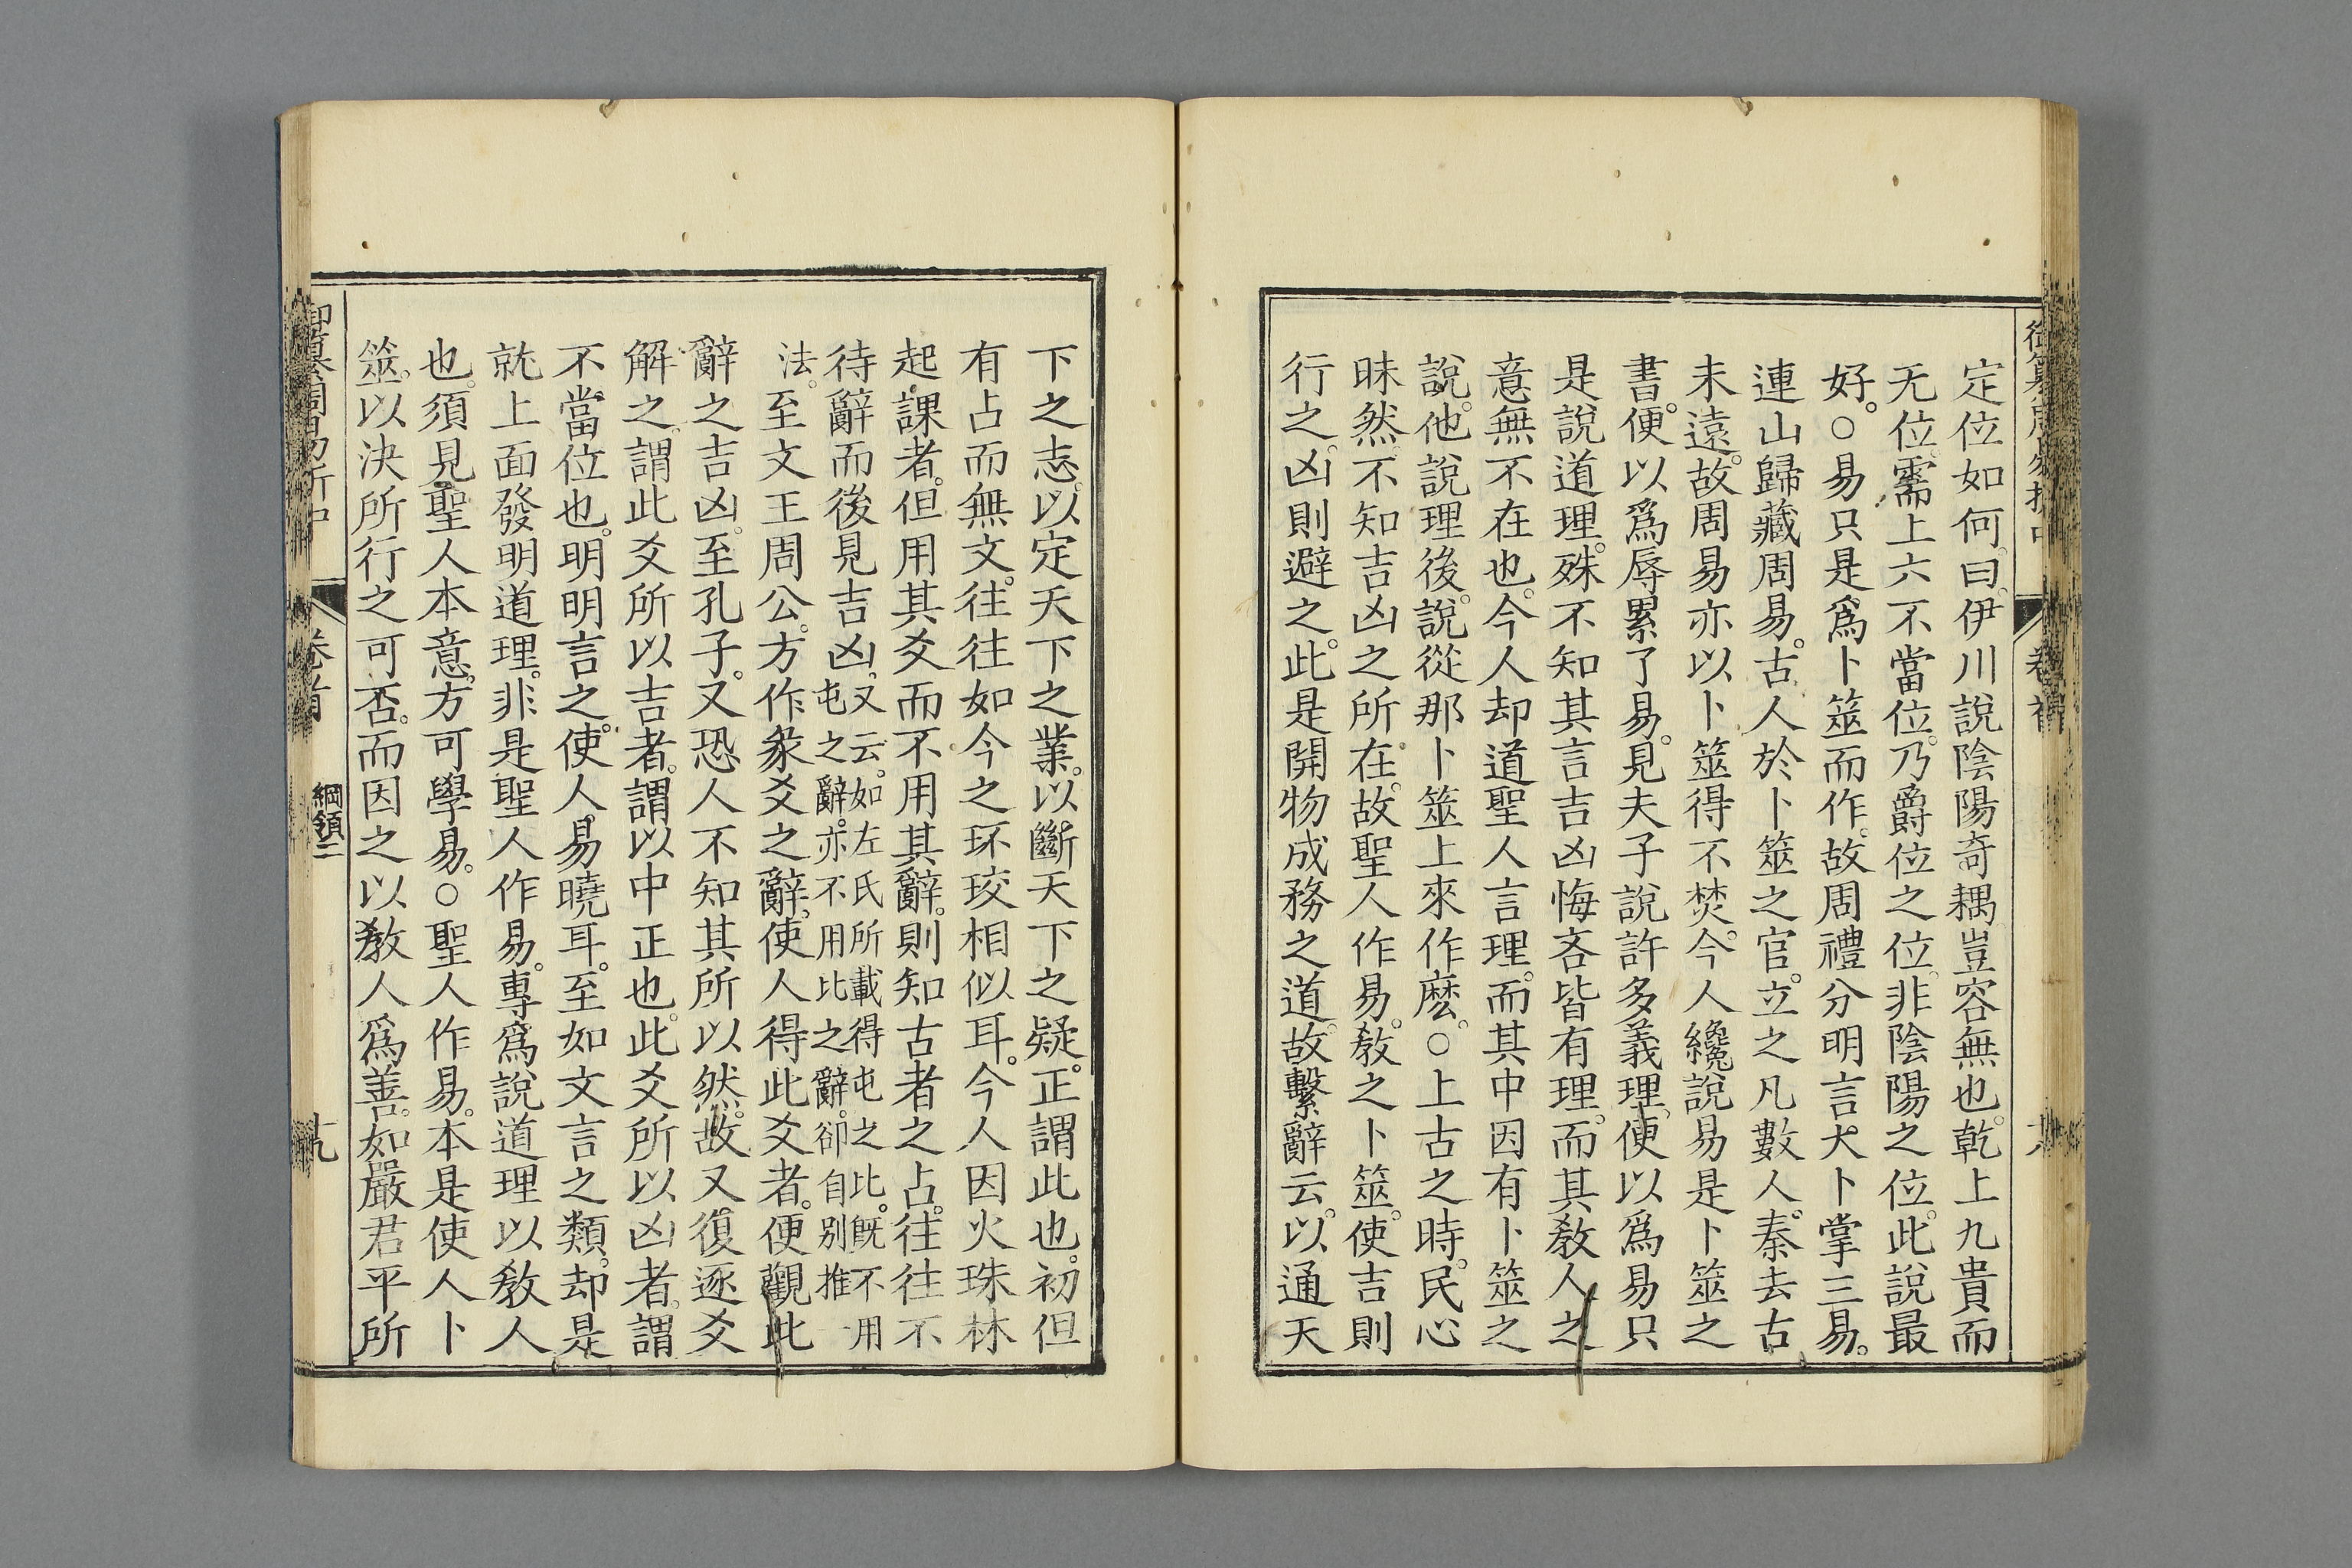 定位如何。曰。伊川說陰陽奇耦。豈容無也。乾上九貴而
无位。需上六不當位。乃爵位之位。非陰陽之位。此說最
好。○易只是爲卜筮而作。故周禮分明言犬卜掌三易。
連山歸藏周易。古人於卜筮之官。立之凡數人。秦去古
未遠。故周易亦以卜筮得不焚。今人纔說易是卜筮之
書。便以爲辱累了易。見夫子說許多義理。便以爲易只
是說道理。殊不知其言吉凶悔吝皆有理。而其教人之
意無不在也。今人却道聖人言理。而其中因有卜筮之
說。他說理後。說從那卜筮上來作麽。○上古之時。民心
昧然不知吉凶之所在。故聖人作易。教之卜筮。使吉則
行之。凶則避之。此是開物成務之道。故繫辭云。以通天
卷首
下之志。以定天下之業。以斷天下之疑。正謂此也。初但
有占而無文。往往如今之环珓相似耳。今人因火珠林
起課者。但用其爻而不用其辭。則知古者之占。往往不
待辭而後見吉凶。又云。如左氏所載得屯之比。既不用
屯之辭。亦不用比之辭。卻自別推一
法。至文王周公。方作彖爻之辭。使人得此爻者。便觀此
辭之吉凶。至孔子。又恐人不知其所以然。故又復逐爻
解之。謂此爻所以吉者。謂以中正也。此爻所以凶者。謂
不當位也。明明言之。使人易曉耳。至如文言之類。却是
就上面發明道理。非是聖人作易。專爲說道理以教人
也。須見聖人本意。方可學易。○聖人作易。本是使人卜
筮。以決所行之可否。而因之以教人爲善。如嚴君平所
卷首
綱領二